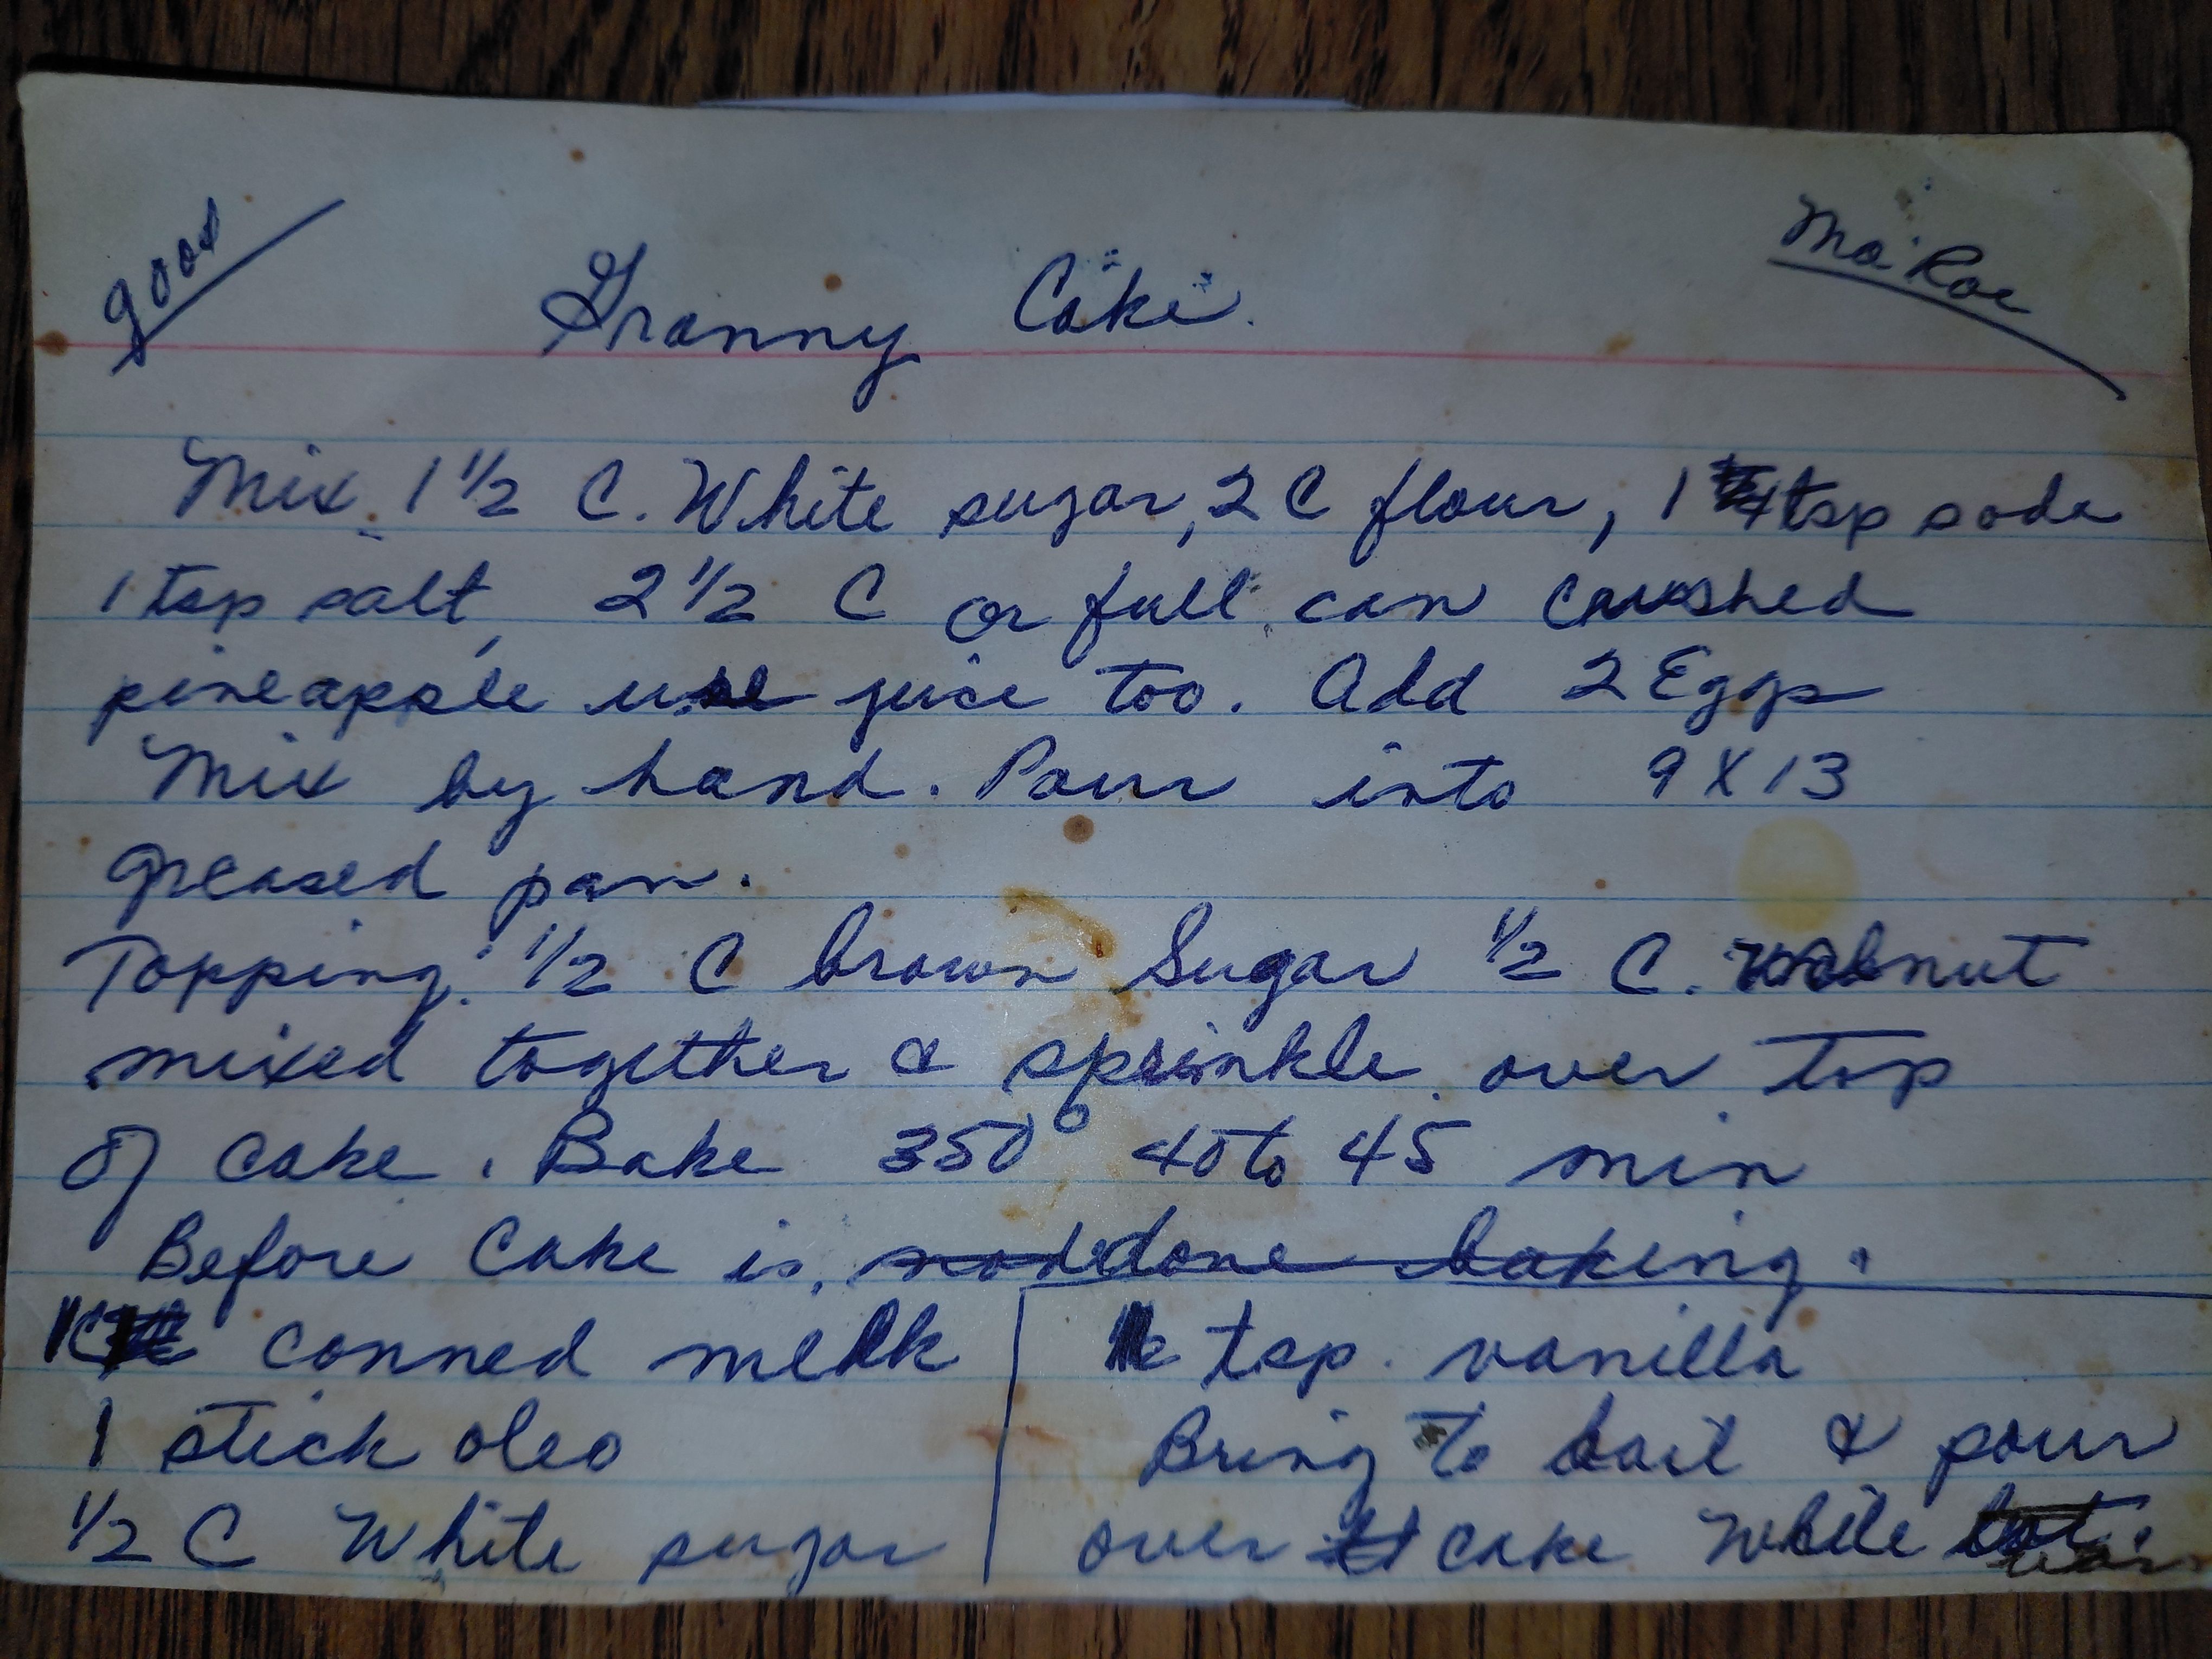 good
Granny Cake.
Ma Roe
Mix 1 1/2 C. White sugar, 2 C flour, 1 tsp soda
1 tsp salt, 2 1/2 C or full can crushed
pineapple use juice too. Add 2 Eggs
Mix by hand. Pour into 9 X 13
greased pan.
Topping: 1/2 C brown Sugar 1/2 C. walnut
mixed together & sprinkle over top
of cake. Bake 350° 40 to 45 min
Before Cake is done baking.
canned milk
1 stick oleo
1/2 C White sugar
tsp. vanilla
Bring to boil & pour
over cake while